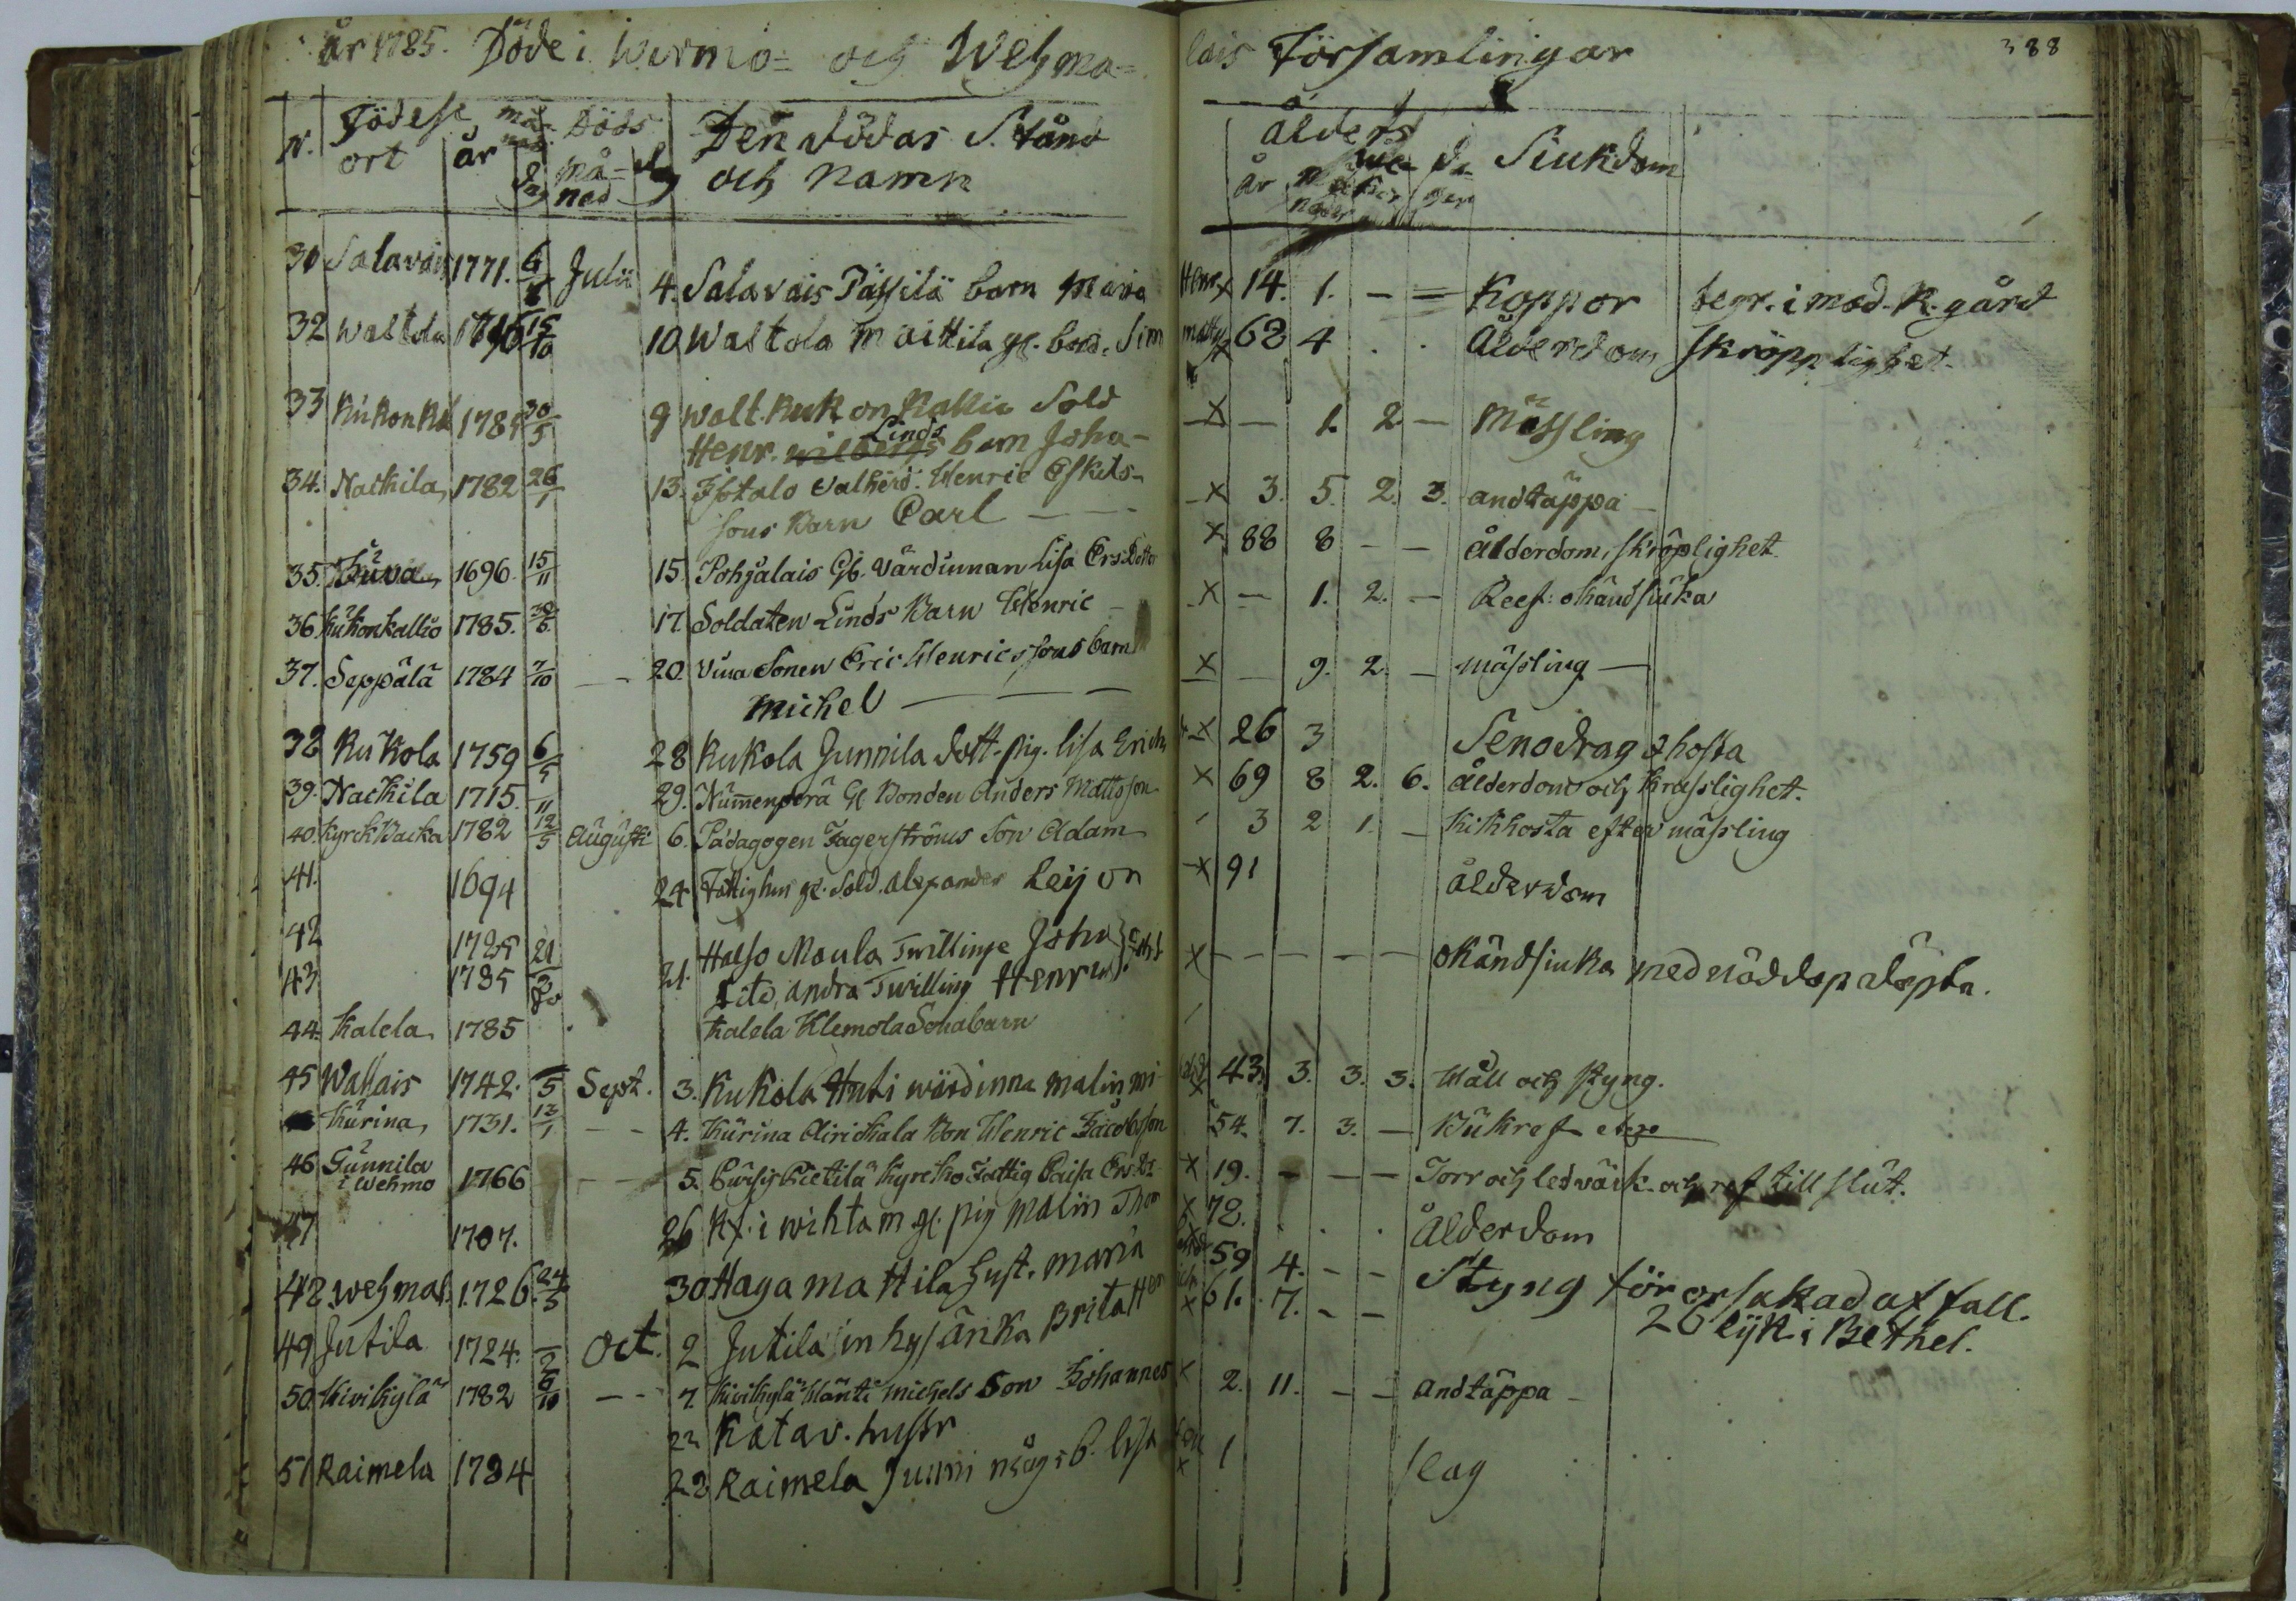 år 1785. Döde i Wirmo= och Wehma= lais Församlingar 388
N. Födelse ort år månad dag Döds må= nad dag Den dödas Stånd och Namn ålders år månader we= kor da= gar Siukdom
31 Salavais 1771. 6/ Julii 4. Salavais Pässilä barn Maria Henr x 14. 1. - = Koppor begr. i mod. K. gård
32 Waltola 15/10 10 Waltola Maittila gl. bond. Sim matts x 62 4 . . Ålderdom skröpplighet.
33 Kukonka 1785 30/5 9 Walt. Kukonkallio Sold
Henr. Linds barn Joha- x - 1. 2 - Mässling
34. Nackila 1782 26/1 13. Isotalo Henric Eskils-
sons Barn Carl - - - x 3. 5. 2. 3. andtäppa -
35. 1696. 15/11 15. Pohjalais Gb. Värdinnan Lisa Ersdotter x 88 8 - - ålderdom, skröplighet
36. Kukonkallio 1785. 30/ 17. Soldaten Linds Barn Henric - x - 1. 2. - Reef: okänd siuka
37. Seppälä 1784 7/10 - - 20. Sonen Eric Henricssons barn
Michel - - - x - 9. 2. - mässling -
38 Kukola 1759 6/ 28 Kukola Junnila dott. pig. Lisa Erich x 26 3 Senodrag & hosta
39. Nackila 1715. /11 29. Nummenperä Gl Bonden Anders Mattsson x 69 8 2. 6. ålderdom och krasslighet.
40. KyrckBacka 1782 12/5 Augusti 6. Pädagogen Fagerströms Son Adam 3 2 1. - Kikhosta efter mässling
41. 1694 24 Fattighm gl. Sold. Alexander Leijon x 91 ålderdom
42 1785 21 Halso Maula Twillinge Joha
43 1785 21. Dito, andra Twilling Henric x - - - - - okändsiuka med nöddop döpta.
44. Kalela 1785 Kalela Klemola Sonabarn
45 Wallais 1742. /5 Sept. 3. Kukola Huti wärdinna Malin mi- x 43. 3. 3. 3. Håll och styng.
Kurina 1731. 13/1 - - 4. Kurina Airickala Bon Henric Jacobsson 54. 7. 3. - Bukref
46 Gunnila i Wehmo 1766 - - 5. Pietilä Kyrcko Fattig Caisa Ers x 19. - - - Torr och ledvärk och ref till slut.
47 1707. 26 Kf. i wihtam gl. pig Malin Thom x 78. . . . Ålderdom
48 Wehmal. 1726. 24/5 30 Haga Mattila hust. Maria 59 4. - - Styng förorsakad af fall.
49 Jutila 1724. /2 Oct. 2 Jutila inhys Änka Brita Hen x 61. 7. - - 26 lijk i Bethel.
50. Kivikylä 1782 6/10 - - 7. Kivikylä Mänti Michels Son Johannes x 2. 11. - - andtäppa -
22 Katav. hustr
51 Raimela 1784 22 Raimela Junni mågs b. Lisa x 1 slag